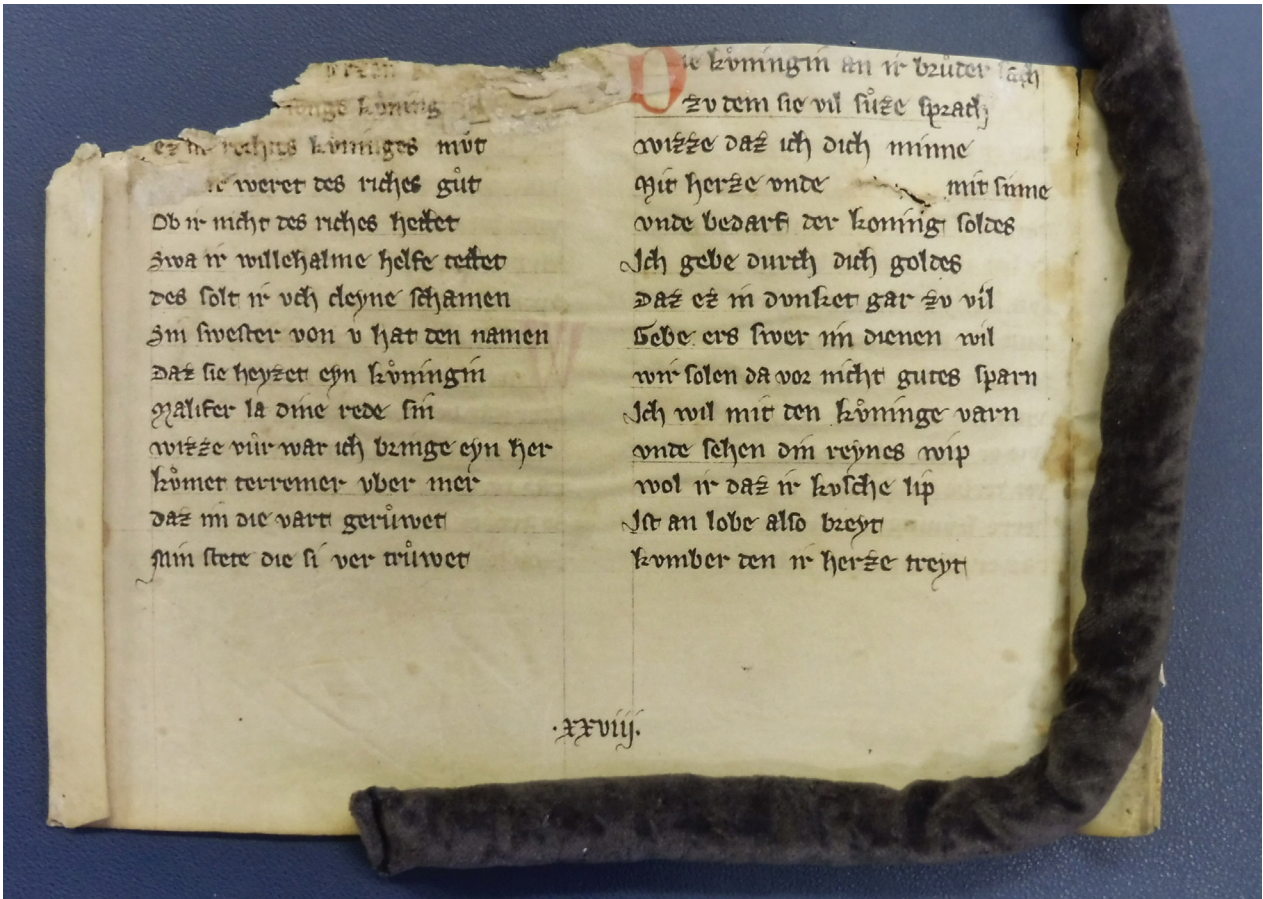 iunge kůning
rechtes kůniges můt
ir weret des riches gůt
Ob ir nicht des riches hettet
Swa ir willehalme helfe tettet
des solt ir vch cleyne schamen
Sin swester von v hat den namen
Daz sie heyzet eyn kůningin
Malifer la dine rede sin
wizze vůr war ich bringe eyn her
kůmet terremer vber mer
daz im die vart gerůwet
Min stete die si ver trůwet
Die kůningin an ir brůder sach
zv dem sie vil sůze sprach
wizze daz ich dich minne
Mit herze vnde mit sinne
vnde bedarf der koninig soldes
Ich gebe durch dich goldes
Daz ez in dvnket gar zv vil
Gebe ers swer im dienen wil
wir solen da vor nicht gutes sparn
Ich wil mit den kůninge varn
vnde sehen din reynes wip
wol ir daz ir kvsche lip
Ist an lobe also breyt
kvmber den ir herze treyt
.xxviij.